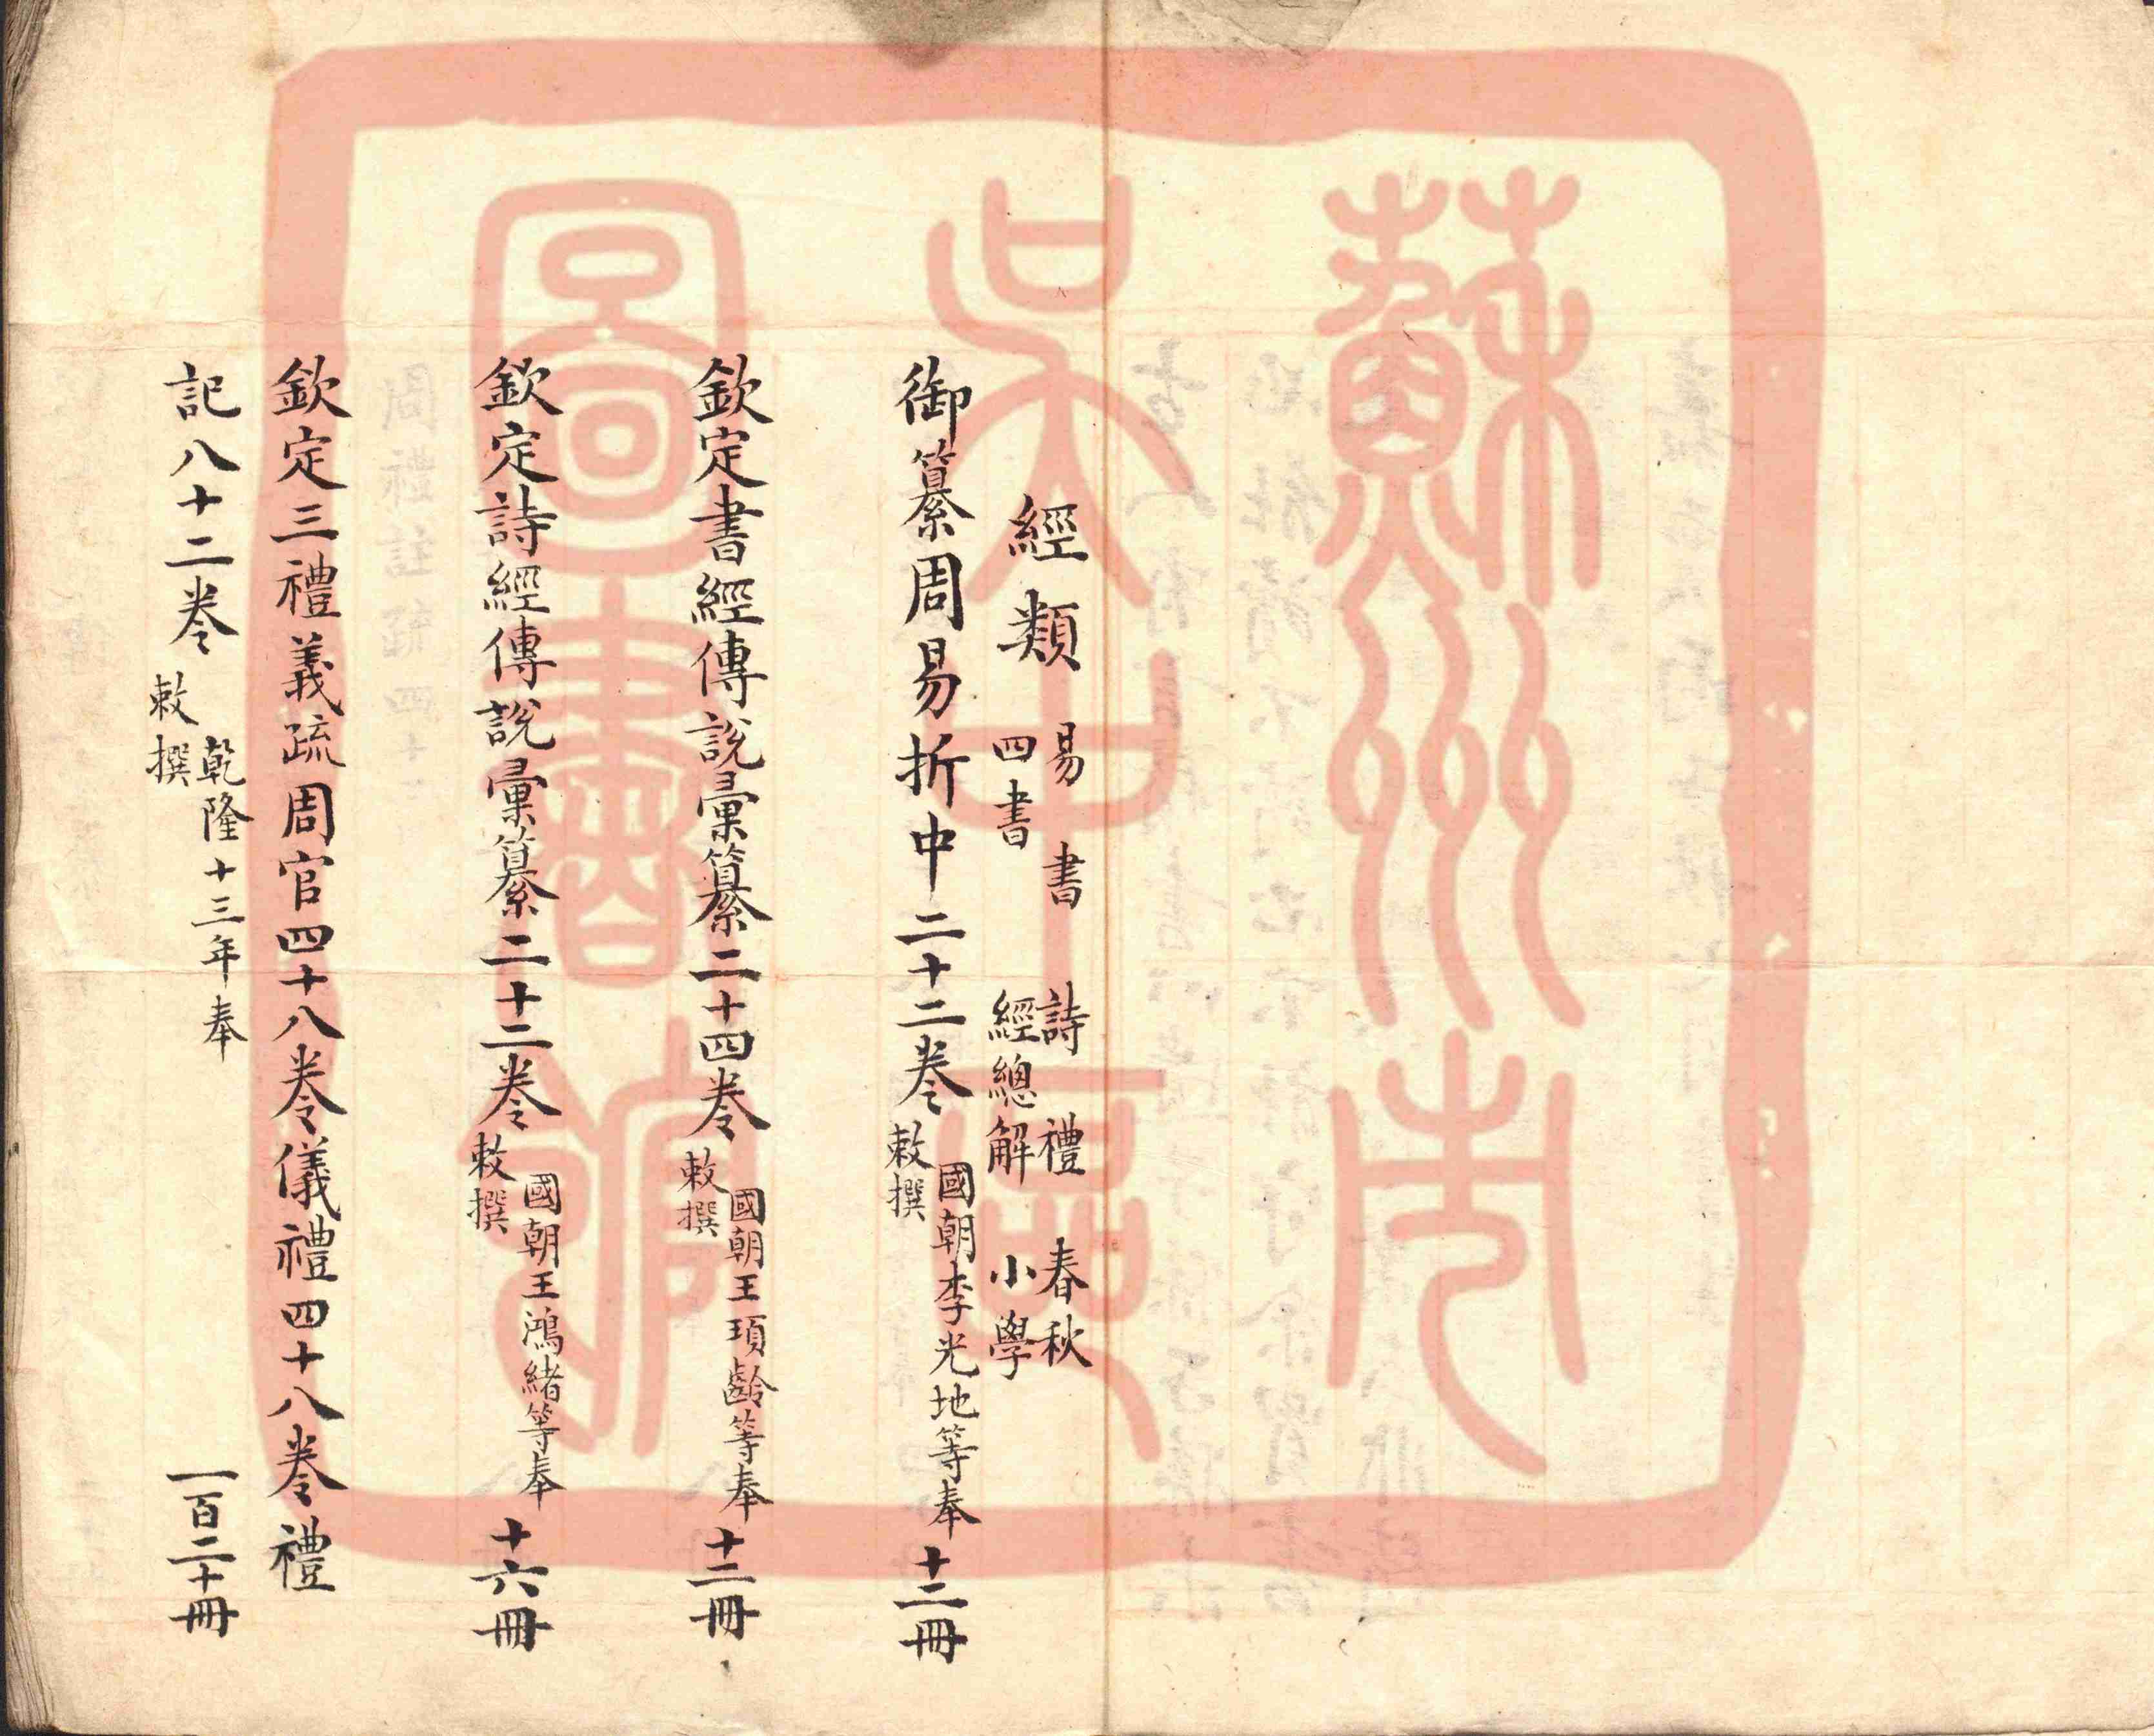 蘇州市
吳中區
圖書館
經類 易 書 詩 禮 春秋
四書 經總解 小學
御纂周易折中二十二卷 國朝李光地等奉
敕撰 十二冊
欽定書經傳說彙纂二十四卷 國朝王頊齡等奉
敕撰 十二冊
欽定詩經傳說彙纂二十二卷 國朝王鴻緒等奉
敕撰 十六冊
欽定三禮義疏周官四十八卷儀禮四十八卷禮
記八十二卷 乾隆十三年奉
敕撰 一百二十冊
周禮註疏 四十